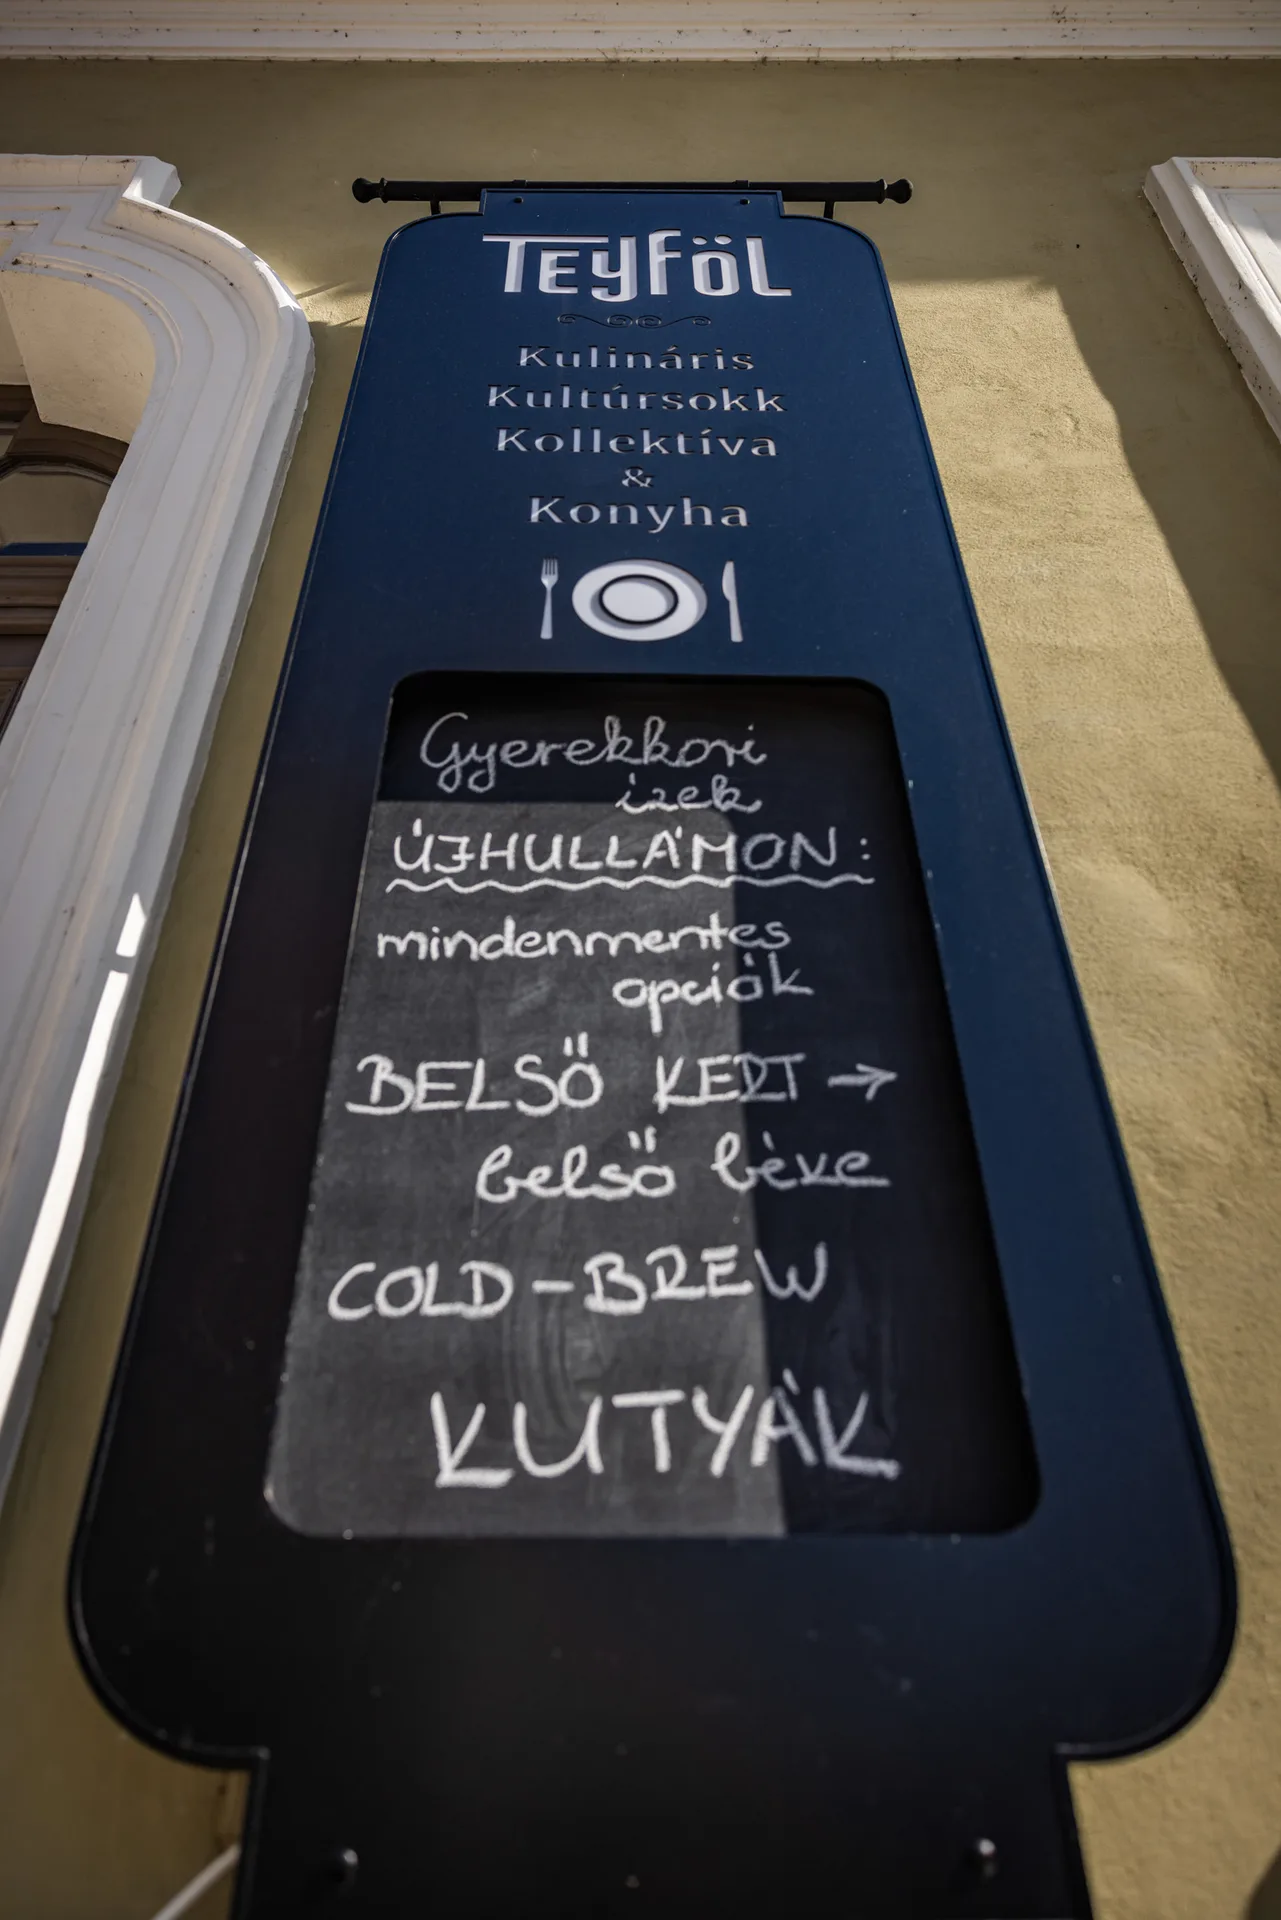 TEJFÖL
Kulináris
Kultúrsokk
Kollektíva
&
Konyha
Gyerekkori
izek
ÚJHULLÁMON:
mindenmentes
opciók
BELSŐ KERT →
belső béke
COLD-BREW
KUTYÁK